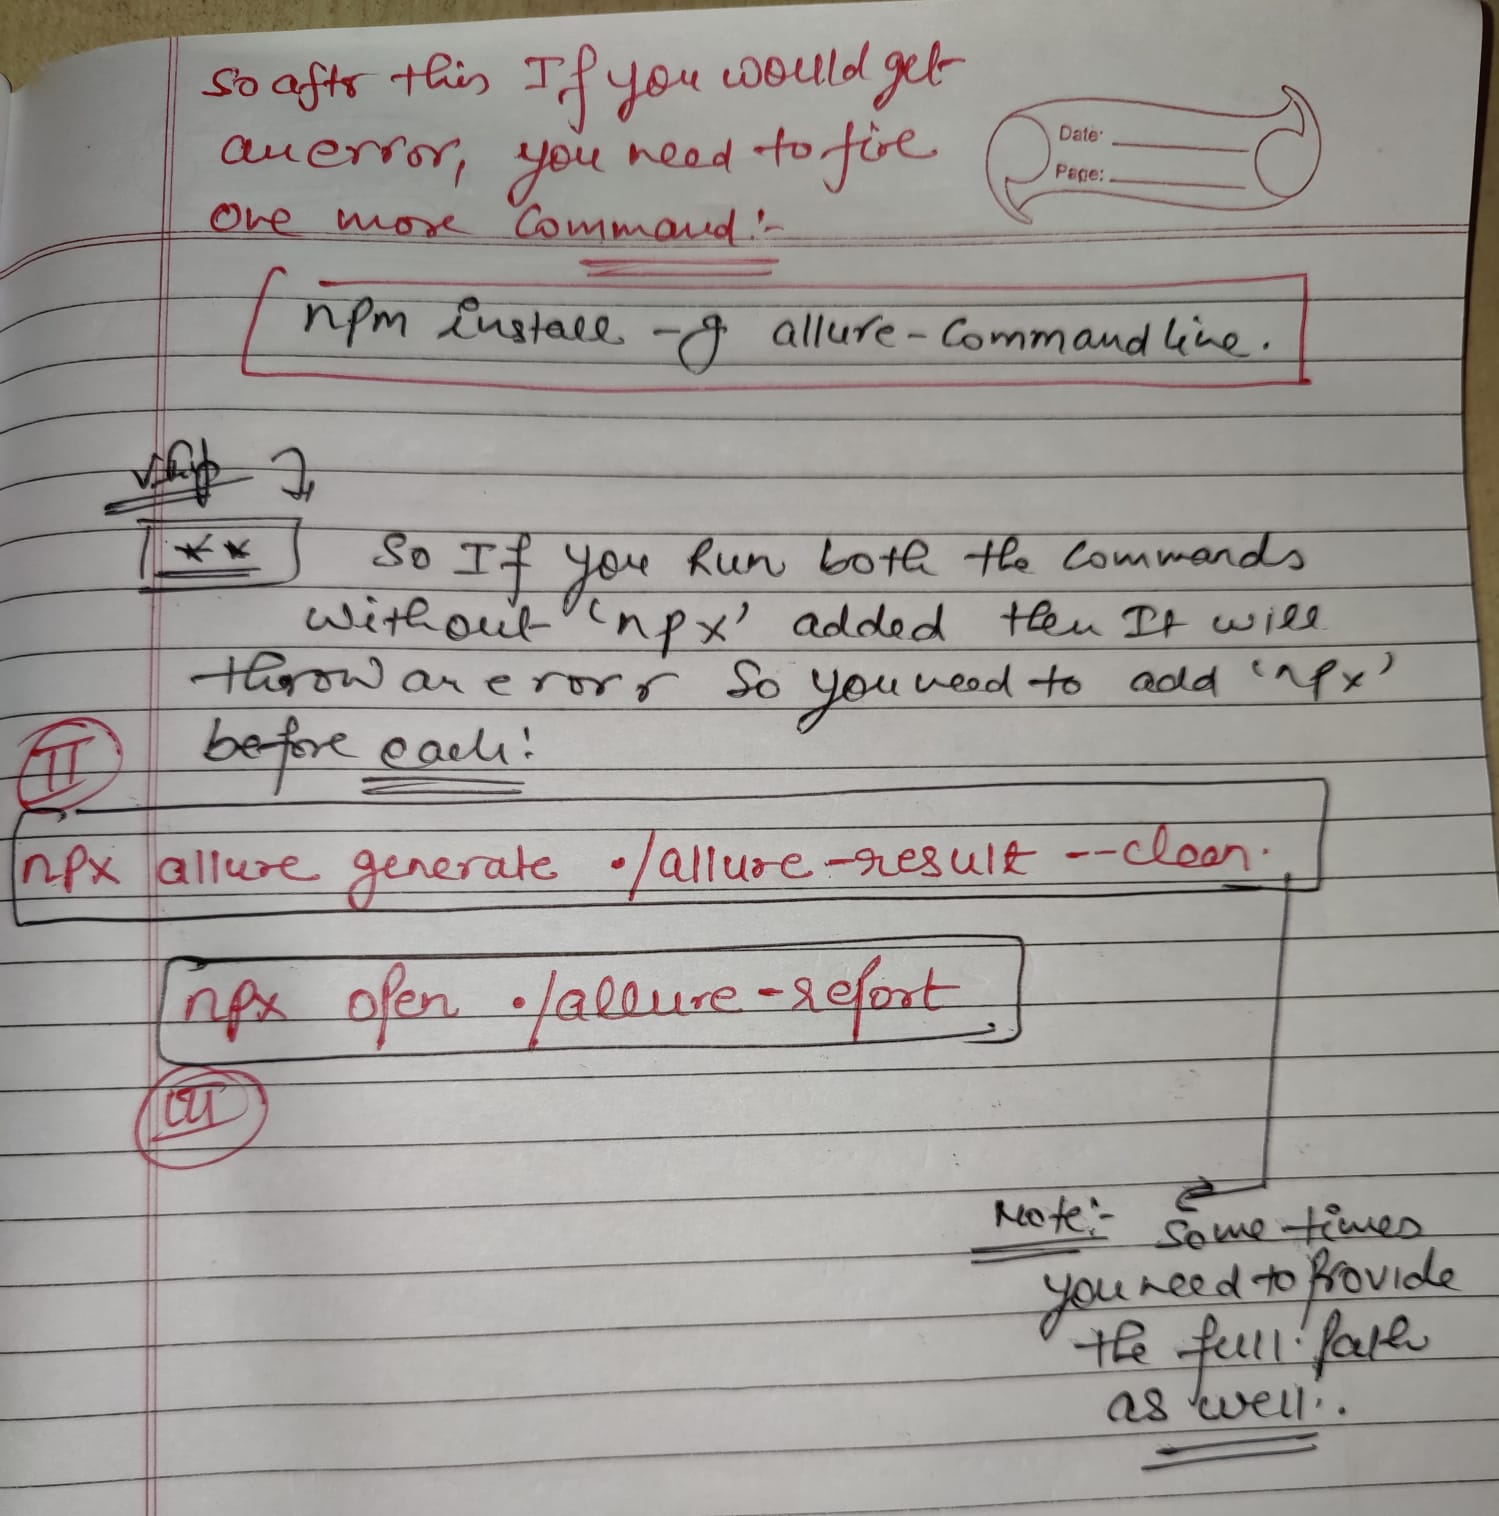 So aftr this If you would get
an error, you need to fire
one more Command:-
Date:
Page:
npm install -g allure-Commandline.
V.Imp
** So If you Run both the Commands
without 'npx' added then It will
throw an erorr So you need to add 'npx'
before each:
II
npx allure generate ./allure-result --clean.
npx open ./allure-report
III
Note:- Some times
you need to Provide
the full path
as well..